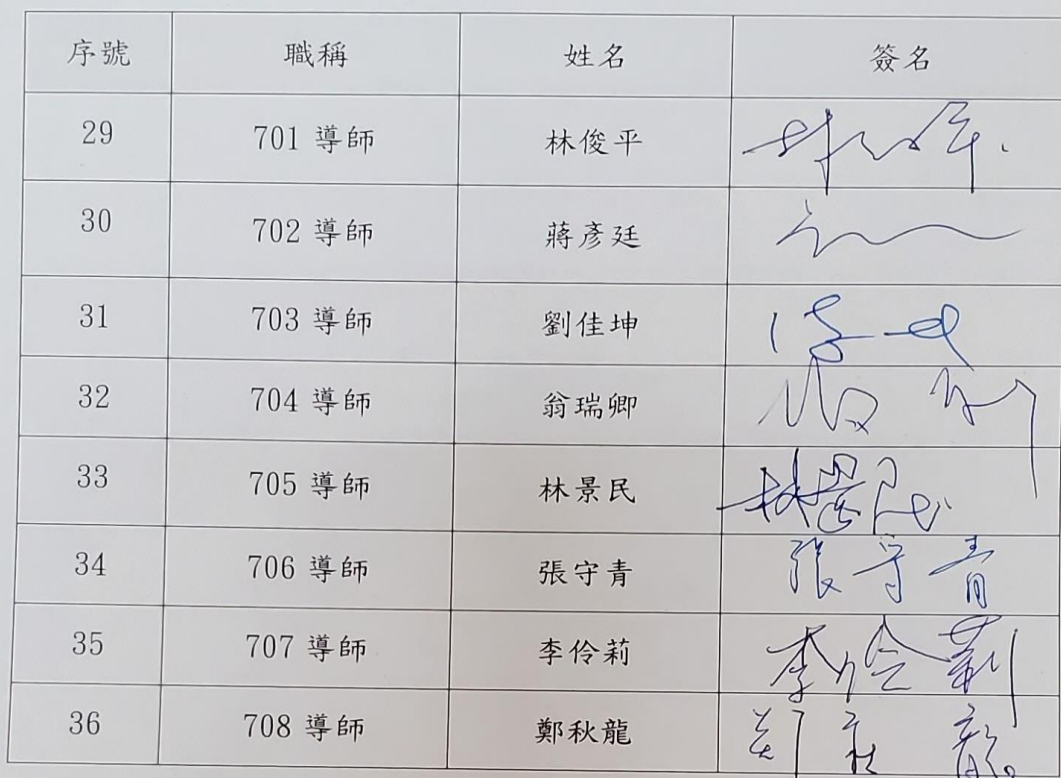 序號 職稱 姓名 簽名
29 701 導師 林俊平
30 702 導師 蔣彥廷
31 703 導師 劉佳坤
32 704 導師 翁瑞卿
33 705 導師 林景民 林景民
34 706 導師 張守青 張守青
35 707 導師 李伶莉 李伶莉
36 708 導師 鄭秋龍 鄭秋龍